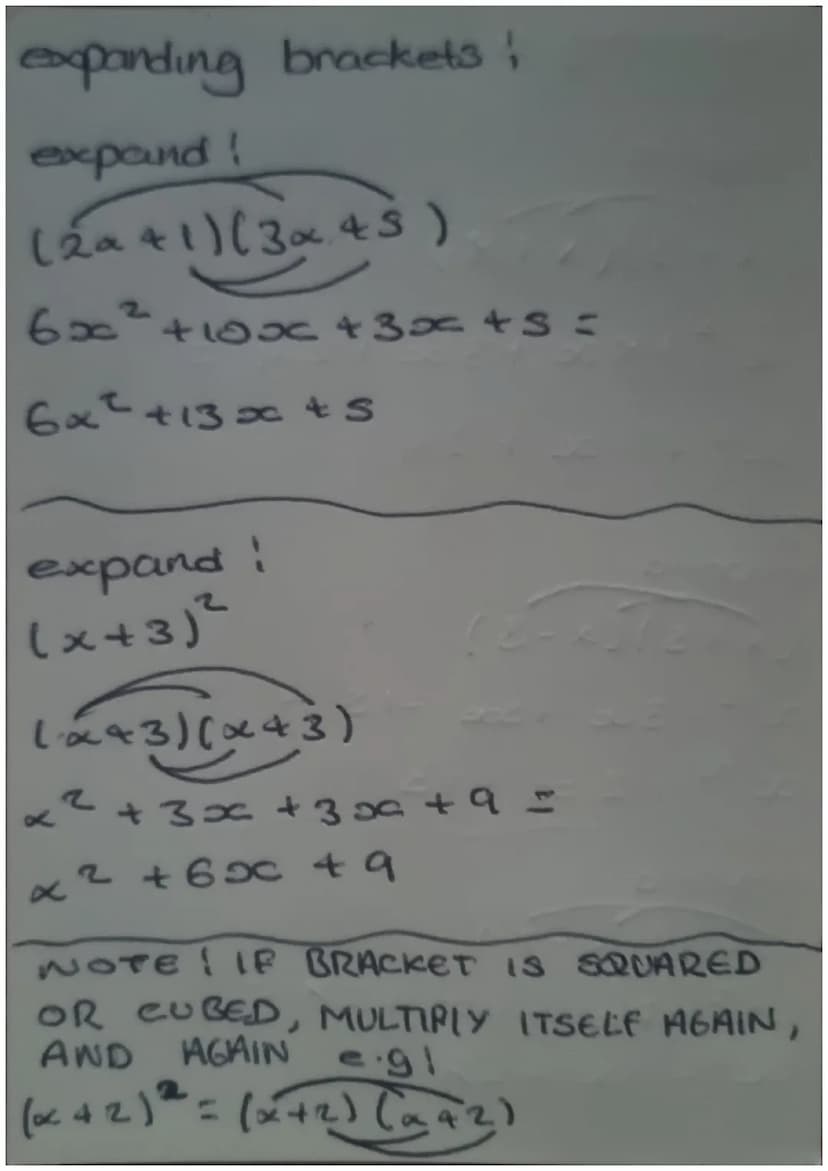 expanding brackets:
expand:
(2x+1)(3x+5)
6x²+10x+3x+5=
6x²+13x+5
expand:
(x+3)²
(x+3)(x+3)
x²+3x+3x+9=
x²+6x+9
NOTE: IF BRACKET IS SQUARED
OR CUBED, MULTIPLY ITSELF AGAIN,
AND AGAIN e.g:
(x+2)²=(x+2)(x+2)